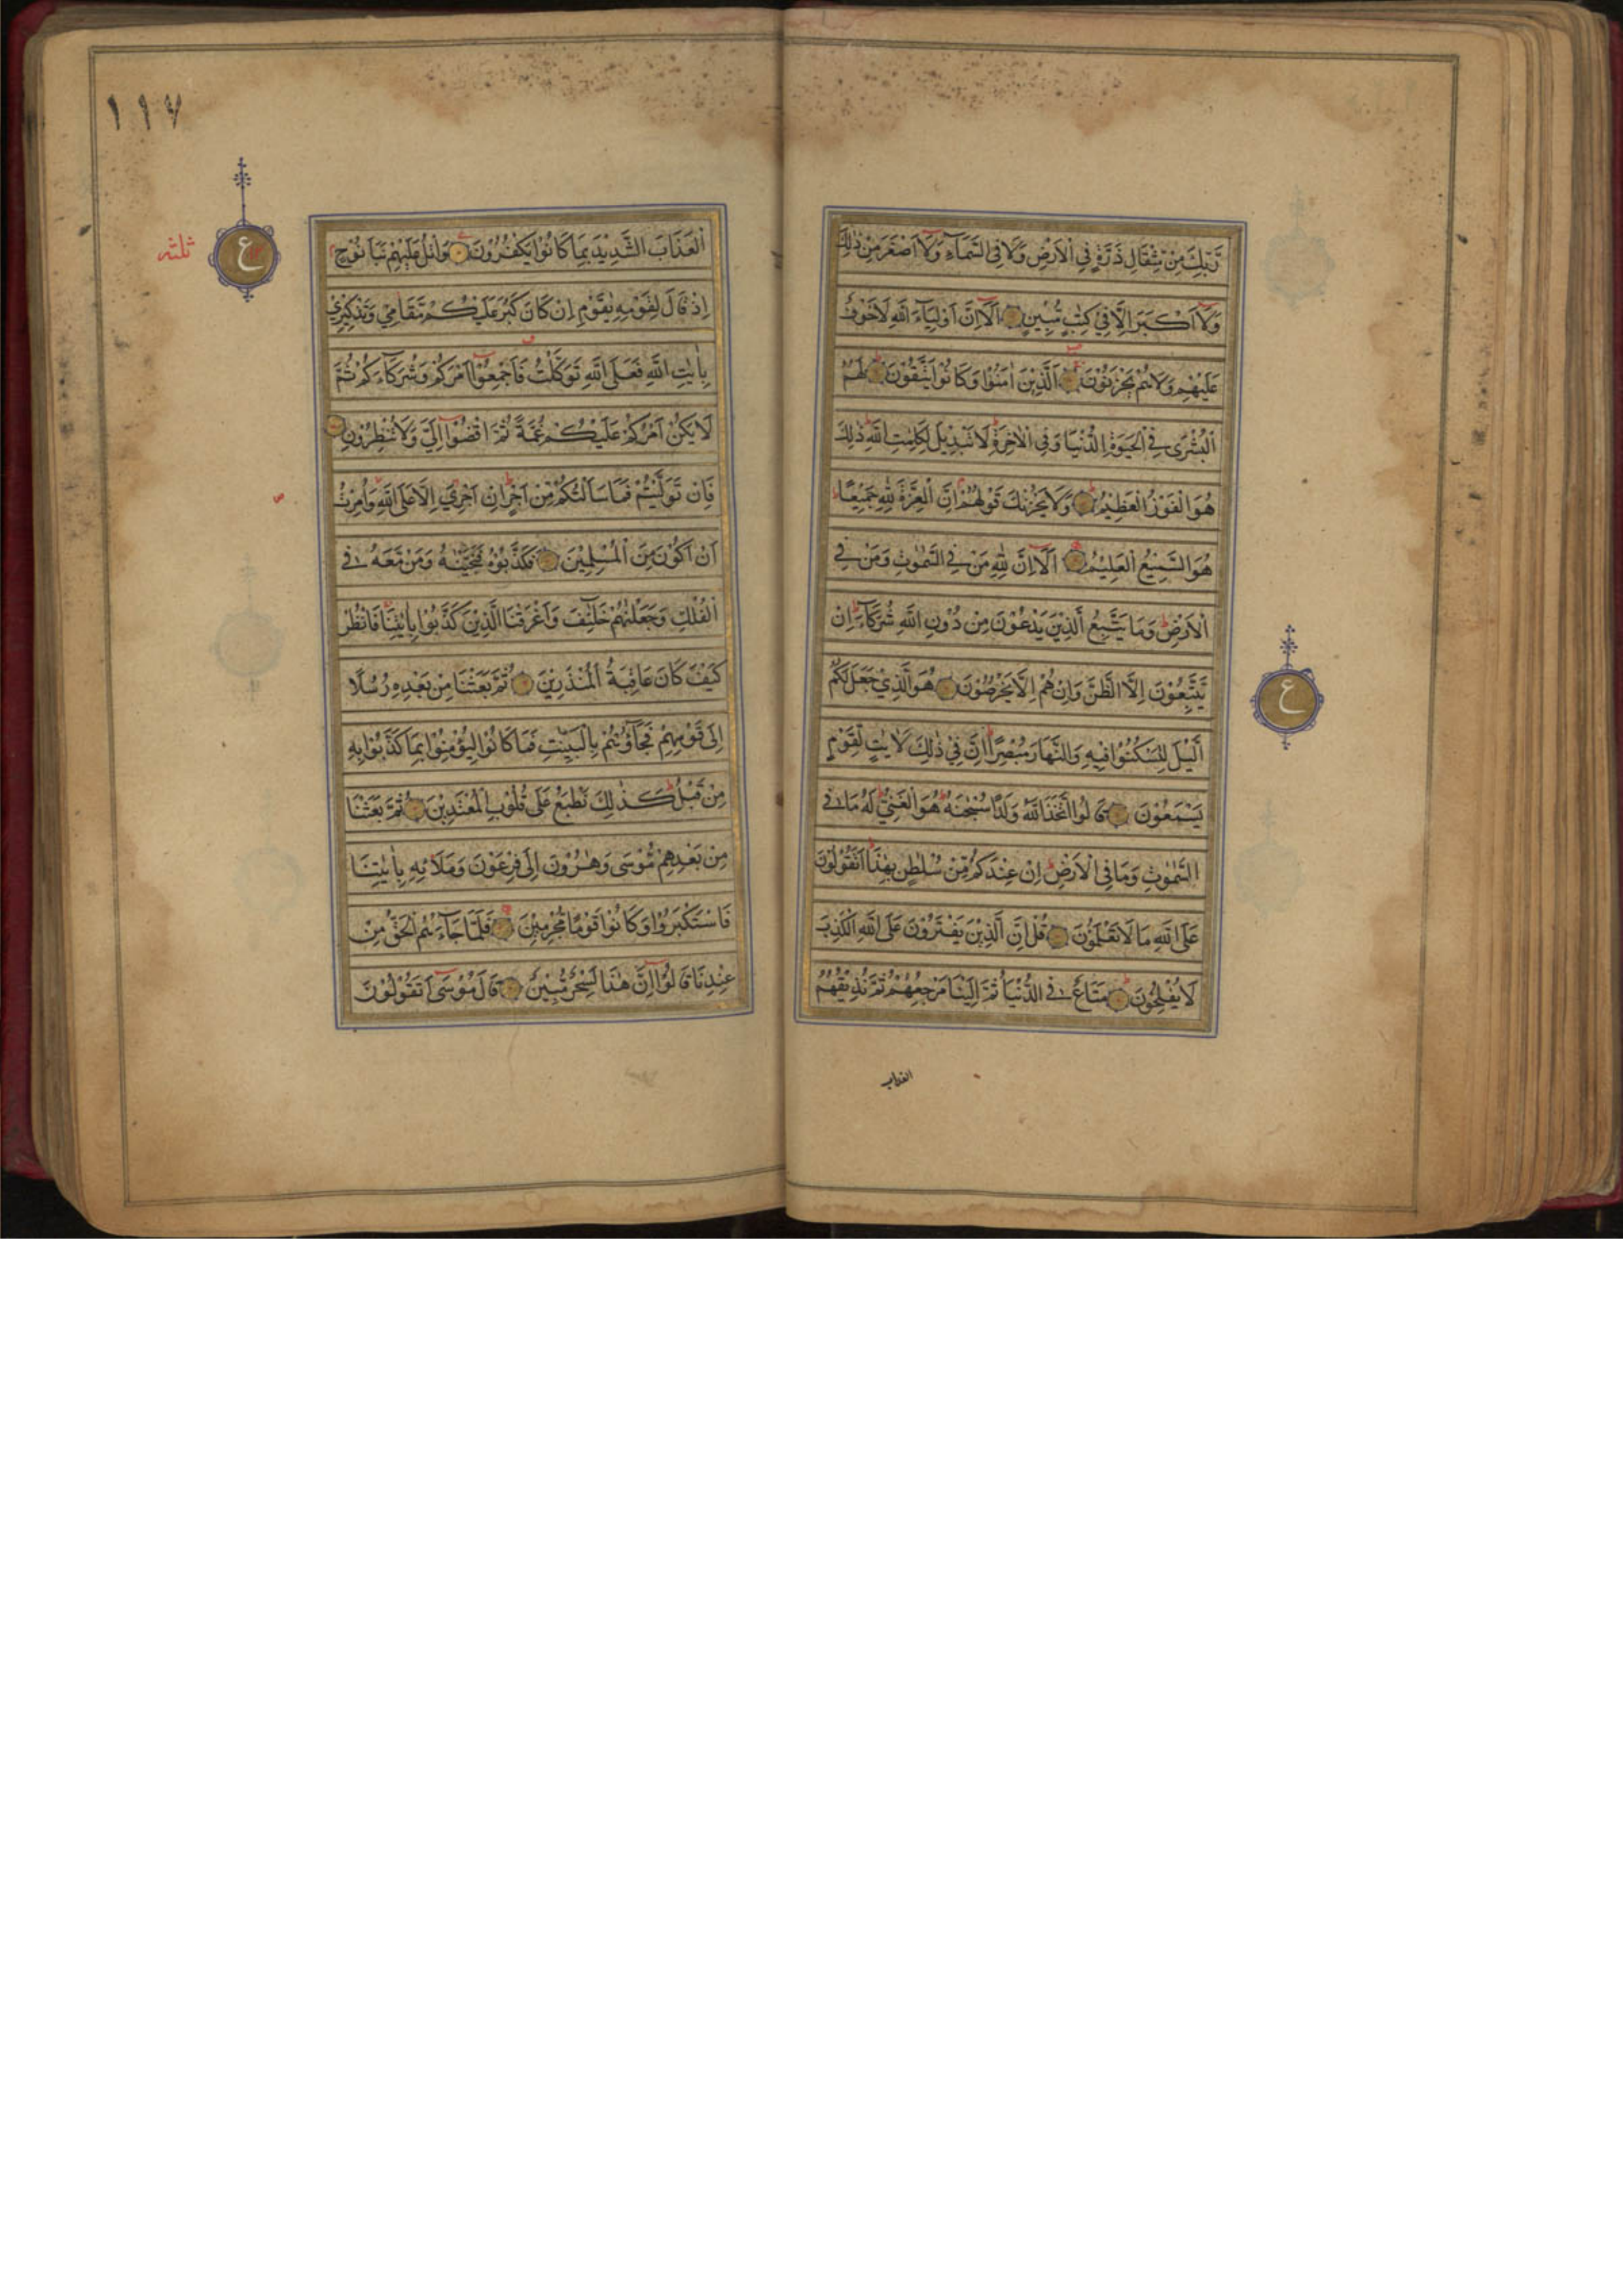 رَّبِّكَ مِنْ مِّثْقَالِ ذَرَّةٍ فِي الْاَرْضِ وَلَا فِي السَّمَآءِ وَلَآ اَصْغَرَ مِنْ ذٰلِكَ
وَلَآ اَكْبَرَ اِلَّا فِيْ كِتٰبٍ مُّبِيْنٍ اَلَآ اِنَّ اَوْلِيَآءَ اللّٰهِ لَاخَوْفٌ
عَلَيْهِمْ وَلَاهُمْ يَحْزَنُوْنَ اَلَّذِيْنَ اٰمَنُوْا وَكَانُوْا يَتَّقُوْنَ لَهُمُ
الْبُشْرٰى فِي الْحَيٰوةِ الدُّنْيَا وَفِي الْاٰخِرَةِ لَا تَبْدِيْلَ لِكَلِمٰتِ اللّٰهِ ذٰلِكَ
هُوَ الْفَوْزُ الْعَظِيْمُ وَلَا يَحْزُنْكَ قَوْلُهُمْ اِنَّ الْعِزَّةَ لِلّٰهِ جَمِيْعًا
هُوَ السَّمِيْعُ الْعَلِيْمُ اَلَآ اِنَّ لِلّٰهِ مَنْ فِي السَّمٰوٰتِ وَمَنْ فِي
الْاَرْضِ وَمَا يَتَّبِعُ الَّذِيْنَ يَدْعُوْنَ مِنْ دُوْنِ اللّٰهِ شُرَكَآءَ اِنْ
يَّتَّبِعُوْنَ اِلَّا الظَّنَّ وَاِنْ هُمْ اِلَّا يَخْرُصُوْنَ هُوَ الَّذِيْ جَعَلَ لَكُمُ
الَّيْلَ لِتَسْكُنُوْا فِيْهِ وَالنَّهَارَ مُبْصِرًا اِنَّ فِيْ ذٰلِكَ لَاٰيٰتٍ لِّقَوْمٍ
يَّسْمَعُوْنَ قَالُوا اتَّخَذَ اللّٰهُ وَلَدًا سُبْحٰنَهٗ هُوَ الْغَنِيُّ لَهٗ مَا فِي
السَّمٰوٰتِ وَمَا فِي الْاَرْضِ اِنْ عِنْدَكُمْ مِّنْ سُلْطٰنٍ بِهٰذَا اَتَقُوْلُوْنَ
عَلَى اللّٰهِ مَا لَا تَعْلَمُوْنَ قُلْ اِنَّ الَّذِيْنَ يَفْتَرُوْنَ عَلَى اللّٰهِ الْكَذِبَ
لَا يُفْلِحُوْنَ مَتَاعٌ فِي الدُّنْيَا ثُمَّ اِلَيْنَا مَرْجِعُهُمْ ثُمَّ نُذِيْقُهُمُ
العذاب
ع
١١٧
ع
ثلثه
الْعَذَابَ الشَّدِيْدَ بِمَا كَانُوْا يَكْفُرُوْنَ وَاتْلُ عَلَيْهِمْ نَبَاَ نُوْحٍ
اِذْ قَالَ لِقَوْمِهٖ يٰقَوْمِ اِنْ كَانَ كَبُرَ عَلَيْكُمْ مَّقَامِيْ وَتَذْكِيْرِيْ
بِاٰيٰتِ اللّٰهِ فَعَلَى اللّٰهِ تَوَكَّلْتُ فَاَجْمِعُوْٓا اَمْرَكُمْ وَشُرَكَآءَكُمْ ثُمَّ
لَا يَكُنْ اَمْرُكُمْ عَلَيْكُمْ غُمَّةً ثُمَّ اقْضُوْٓا اِلَيَّ وَلَا تُنْظِرُوْنِ
فَاِنْ تَوَلَّيْتُمْ فَمَا سَاَلْتُكُمْ مِّنْ اَجْرٍ اِنْ اَجْرِيَ اِلَّا عَلَى اللّٰهِ وَاُمِرْتُ
اَنْ اَكُوْنَ مِنَ الْمُسْلِمِيْنَ فَكَذَّبُوْهُ فَنَجَّيْنٰهُ وَمَنْ مَّعَهٗ فِي
الْفُلْكِ وَجَعَلْنٰهُمْ خَلٰٓئِفَ وَاَغْرَقْنَا الَّذِيْنَ كَذَّبُوْا بِاٰيٰتِنَا فَانْظُرْ
كَيْفَ كَانَ عَاقِبَةُ الْمُنْذَرِيْنَ ثُمَّ بَعَثْنَا مِنْ بَعْدِهٖ رُسُلًا
اِلٰى قَوْمِهِمْ فَجَآءُوْهُمْ بِالْبَيِّنٰتِ فَمَا كَانُوْا لِيُؤْمِنُوْا بِمَا كَذَّبُوْا بِهٖ
مِنْ قَبْلُ كَذٰلِكَ نَطْبَعُ عَلٰى قُلُوْبِ الْمُعْتَدِيْنَ ثُمَّ بَعَثْنَا
مِنْ بَعْدِهِمْ مُّوْسٰى وَهٰرُوْنَ اِلٰى فِرْعَوْنَ وَمَلَا۟ئِهٖ بِاٰيٰتِنَا
فَاسْتَكْبَرُوْا وَكَانُوْا قَوْمًا مُّجْرِمِيْنَ فَلَمَّا جَآءَهُمُ الْحَقُّ مِنْ
عِنْدِنَا قَالُوْٓا اِنَّ هٰذَا لَسِحْرٌ مُّبِيْنٌ قَالَ مُوْسٰٓى اَتَقُوْلُوْنَ